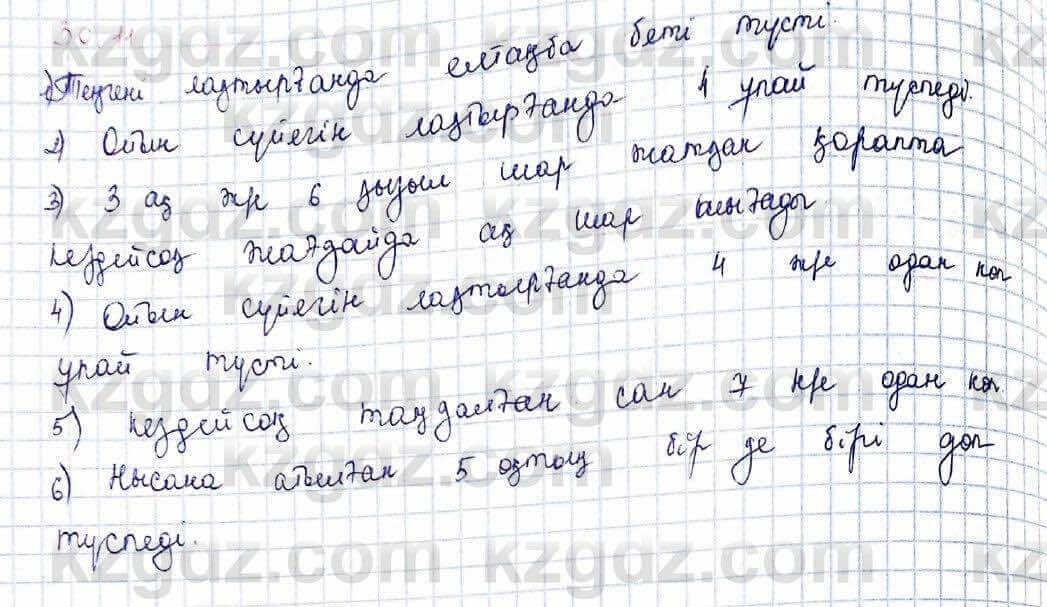 30.11
1) Теңгені лақтырғанда елтаңба беті түсті.
2) Ойын сүйегін лақтырғанда 1 ұпай түспеді.
3) 3 ақ жғе 6 қызыл шар жатқан қорапта
кездейсоқ жағдайда ақ шар алынады
4) Ойын сүйегін лақтырғанда 4 жғе одан көп
ұпай түсті.
5) Кездейсоқ таңдалған сан 7 жғе одан көп.
6) Нысана атылған 5 оқтың бір де бірі доп
түспеді.
kzgdz.com